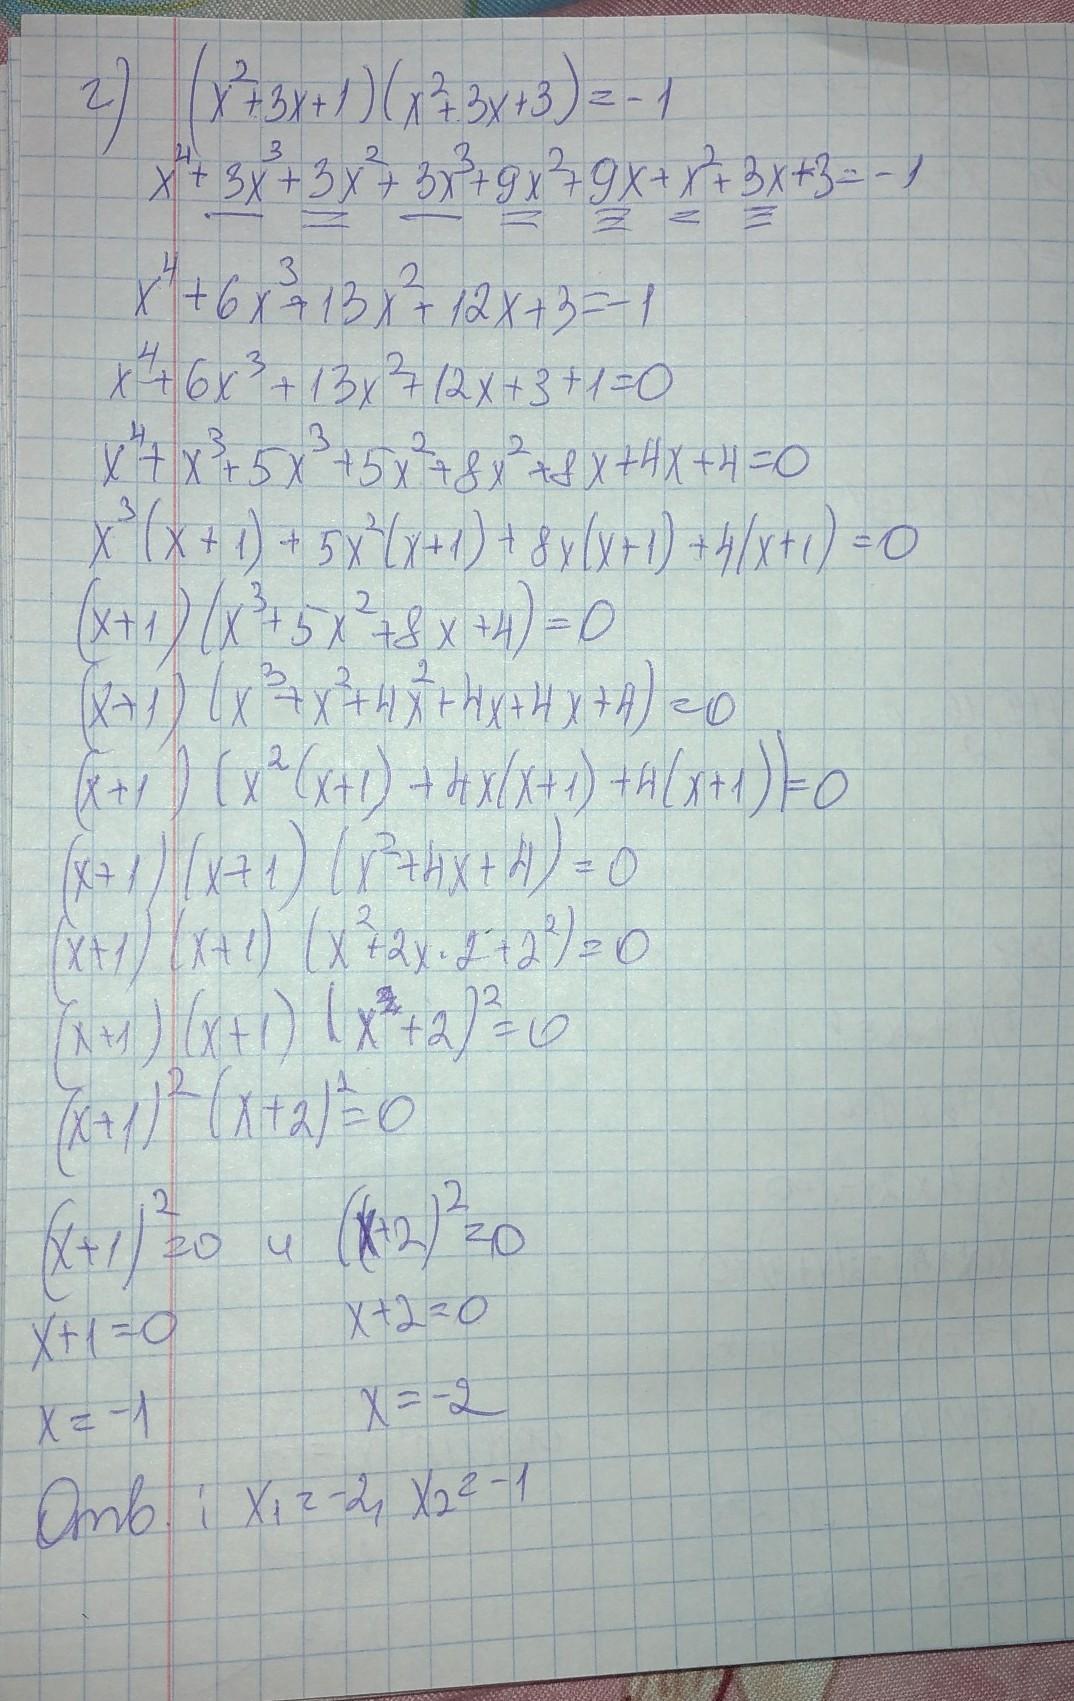 г) (x²+3x+1)(x²+3x+3)=-1
x⁴+3x³+3x²+3x³+9x²+9x+x²+3x+3=-1
x⁴+6x³+13x²+12x+3=-1
x⁴+6x³+13x²+12x+3+1=0
x⁴+x³+5x³+5x²+8x²+8x+4x+4=0
x³(x+1)+5x²(x+1)+8x(x+1)+4(x+1)=0
(x+1)(x³+5x²+8x+4)=0
(x+1)(x³+x²+4x²+4x+4x+4)=0
(x+1)(x²(x+1)+4x(x+1)+4(x+1))=0
(x+1)(x+1)(x²+4x+4)=0
(x+1)(x+1)(x²+2x·2+2²)=0
(x+1)(x+1)(x+2)²=0
(x+1)²(x+2)²=0
(x+1)²=0 и (x+2)²=0
x+1=0 x+2=0
x=-1 x=-2
Отв.: x₁=-2, x₂=-1